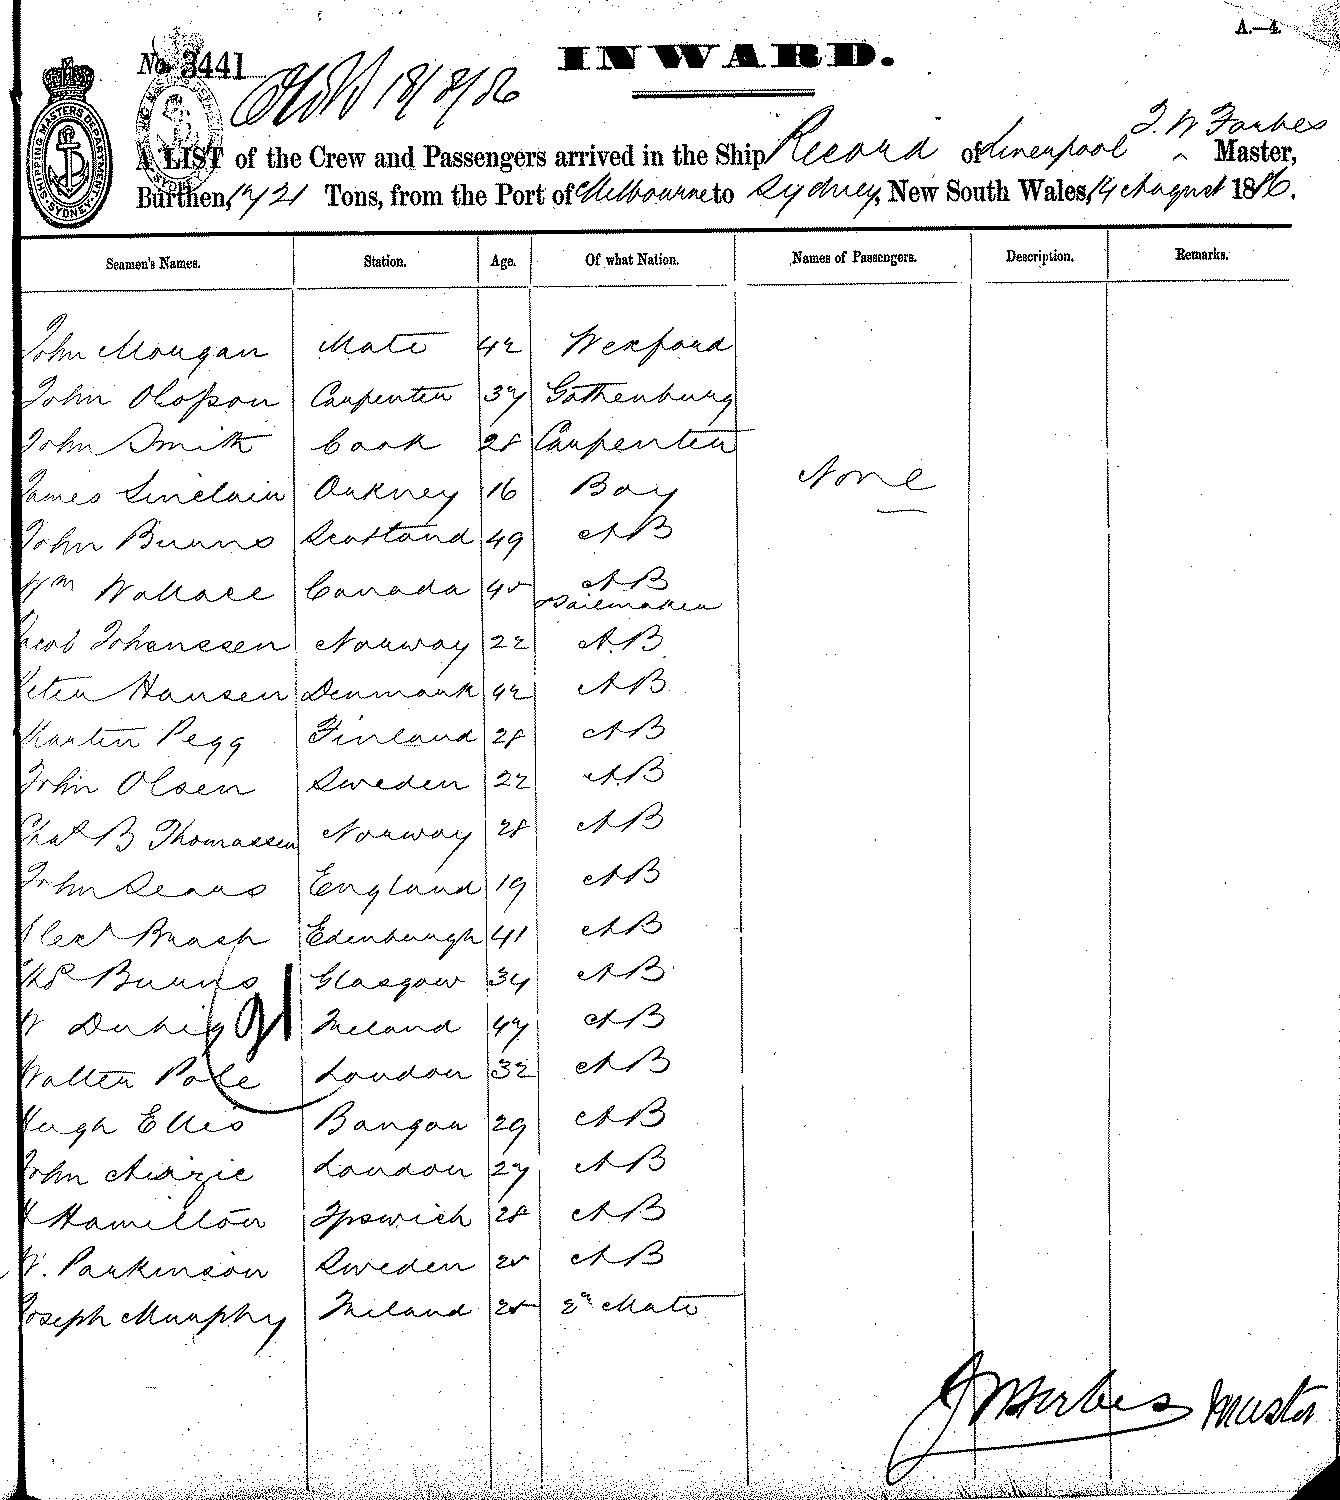 A.—4.
No. 3441
INWARD.
18/8/86
T. W Forbes
A LIST of the Crew and Passengers arrived in the Ship Record of Liverpool Master,
Burthen, 1721 Tons, from the Port of Melbourne to Sydney, New South Wales, 14 August 1886.
SHIPPING MASTERS DEPARTMENT SYDNEY
Seamen's Names. Station. Age. Of what Nation. Names of Passengers. Description. Remarks.
John Morgan Mate 42 Wexford
John Olofson Carpenter 37 Gothenburg
John Smith Cook 28 Carpenter
None
James Sinclair Orkney 16 Boy
John Burns Scotland 49 AB
Wm Wallace Canada 45 AB
Sailmaker
Jacob Johanssen Norway 22 A.B
Peter Hansen Denmark 42 AB
Martin Pegg Finland 28 AB
John Olsen Sweden 22 AB
Chas B Thomassen Norway 28 AB
John Sears England 19 AB
Alexr Brash Edinburgh 41 AB
Burns Glasgow 34 AB
W Duhig Ireland 47 AB
Walter Pole London 32 AB
Hugh Ellis Bangor 29 AB
John London 27 AB
H Hamilton Ipswich 28 AB
W. Parkinson Sweden 25 AB
Joseph Murphy Ireland 25 2nd Mate
J W Forbes Master